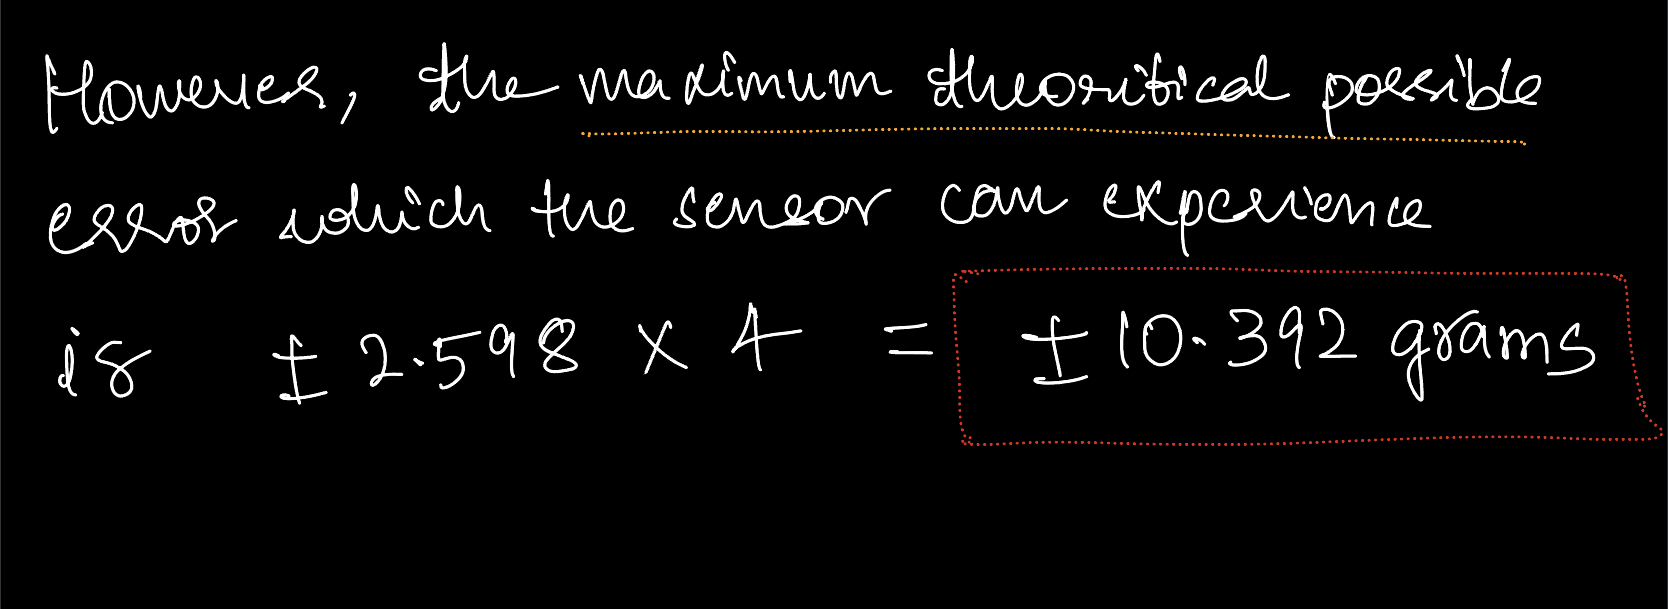 However, the maximum theoritical possible
error which the sensor can experience
is ± 2.598 × 4 = ± 10.392 grams